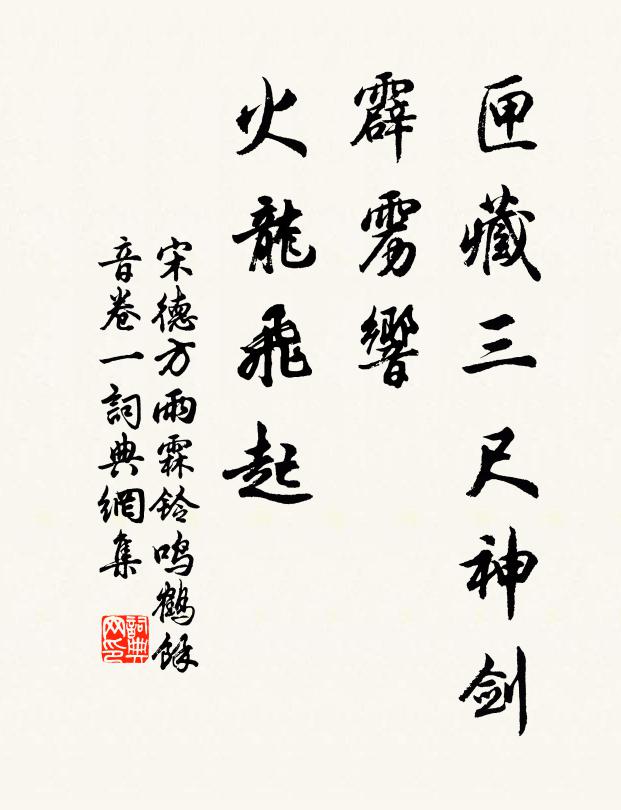 匣藏三尺神劍
霹雳響
火龍飛起
宋德方雨霖鈴鳴鶴餘
音卷一詞典網集
詞典网印